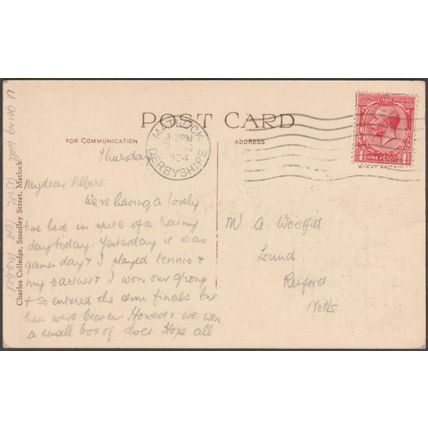 POST CARD
FOR COMMUNICATION
ADDRESS
MATLOCK
DERBYSHIRE
ONE PENNY
Thursday
My dear Albert
We're having a lovely
time here in spite of a rainy
day today. Yesterday it was
games day & I played tennis &
my partner & I won our group
& so entered the semi finals but
then were beaten. However we won
a small box of chocs. Hope all
is going well
Mr A. Woolfitt
Lound
Retford
Notts
Charles Colledge, Smedley Street, Matlock